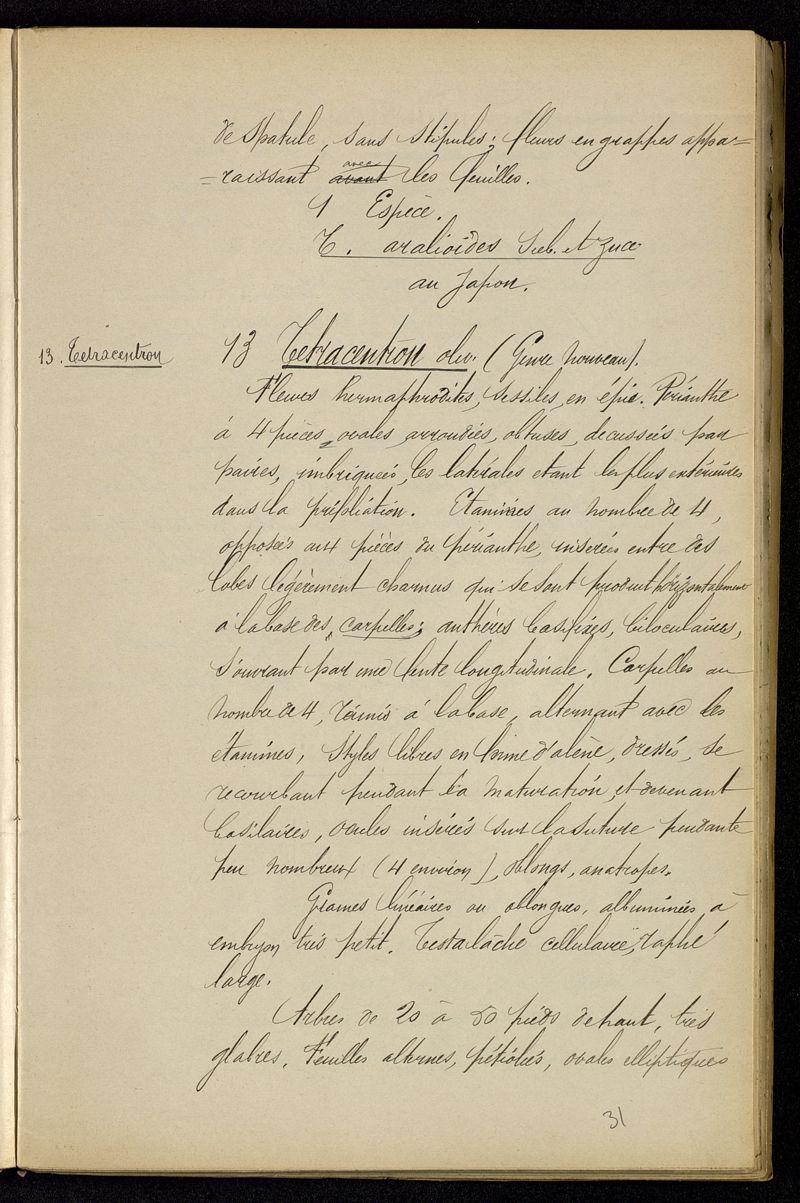 de spatule, sans stipules; fleurs en grappes appa=
=raissant avant avec les feuilles.
1 Espèce.
T. aralioides Sieb. et Zucc
au Japon.
13. Tetracentron
13 Tetracentron oliv. (Genre nouveau).
Fleurs hermaphrodites, sessiles, en épie. Périanthe
à 4 pièces, ovales, arrondies, obtuses, decussées par
paires, imbriquées, les latérales etant les plus extérieures
dans la préfoliation. Etamines au nombre de 4,
opposées aux pièces du périanthe, inserées entre des
lobes légèrement charnus qui se sont produit horizontalement
à la base des carpelles; anthères basifixes, biloculaires,
s'ouvrant par une fente longitudinale. Carpelles au
nombre de 4, réunis à la base, alternant avec les
étamines, Styles libres en forme d'alène, dressés, se
recourbant pendant la maturation, et devenant
basilaires, ovules insérés sur la suture pendante
peu nombreux (4 environ), oblongs, anatropes.
Graines linéaires ou oblongues, albuminées à
embryon très petit. Testa lâche cellulaire, raphé
large.
Arbres de 20 à 50 pieds de haut, très
glabres. Feuilles alternes, pétiolées, ovales elliptiques
31